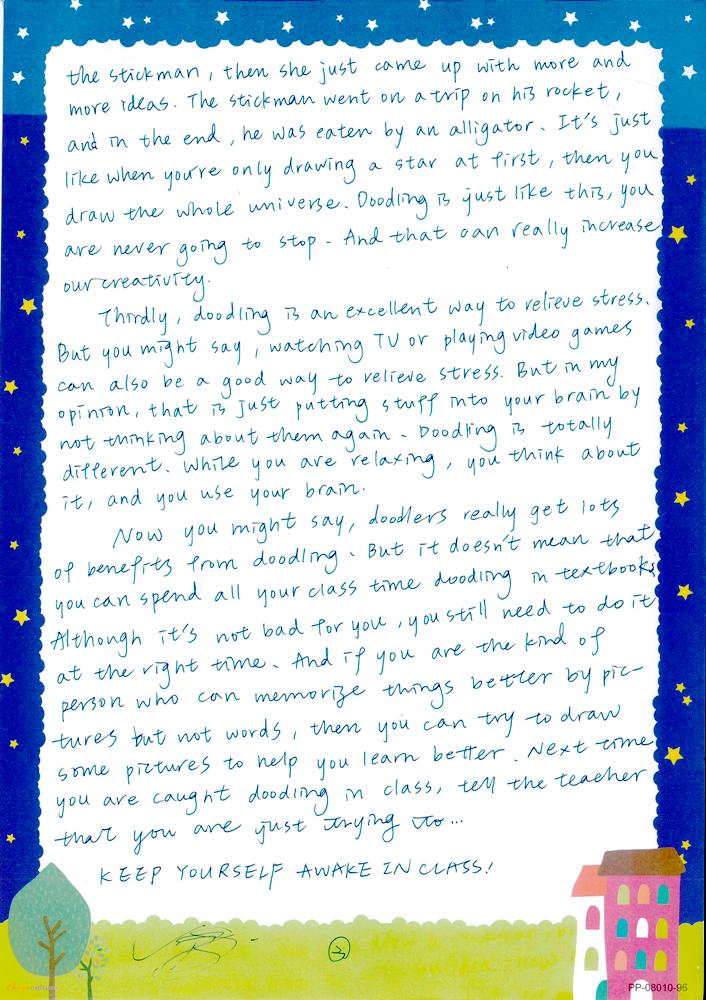 the stickman, then she just came up with more and
more ideas. The stickman went on a trip on his rocket,
and in the end, he was eaten by an alligator. It's just
like when you're only drawing a star at first, then you
draw the whole universe. Doodling is just like this, you
are never going to stop. And that can really increase
our creativity.
Thirdly, doodling is an excellent way to relieve stress.
But you might say, watching TV or playing video games
can also be a good way to relieve stress. But in my
opinion, that is just putting stuff into your brain by
not thinking about them again. Doodling is totally
different. While you are relaxing, you think about
it, and you use your brain.
Now you might say, doodlers really get lots
of benefits from doodling. But it doesn't mean that
you can spend all your class time doodling in textbooks.
Although it's not bad for you, you still need to do it
at the right time. And if you are the kind of
person who can memorize things better by pic-
tures but not words, then you can try to draw
some pictures to help you learn better. Next time
you are caught doodling in class, tell the teacher
that you are just trying to...
KEEP YOURSELF AWAKE IN CLASS!
3
PP-08010-96